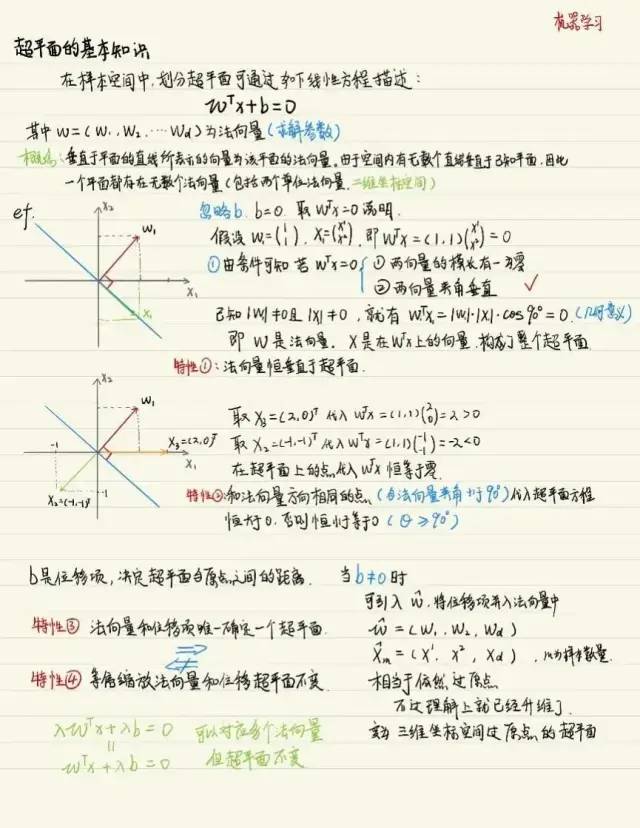 机器学习
超平面的基本知识
在样本空间中,划分超平面可通过如下线性方程描述:
wᵀx+b=0
其中 w=(W₁,W₂,…Wd)为法向量(求解参数)
概念:垂直于平面的直线所表示的向量为该平面的法向量。由于空间内有无数个直线垂直于已知平面,因此
一个平面都存在无数个法向量(包括两个单位法向量,二维坐标空间)
eg.
X₂
W₁
X₁
X₁
忽略b. b=0. 取 WᵀX=0 说明.
假设 W₁=(1 1), X₁=(X¹ X²), 即 WᵀX=(1,1)(X¹ X²)=0
①由条件可知 若 WᵀX=0 { ①两向量的模长有一为零
②两向量夹角垂直 ✓
已知|W|≠0且|X|≠0,就有 WᵀX₁=|W|·|X|·cos90°=0.(几何意义)
即 W是法向量。X是在WᵀX上的向量.构成了整个超平面
特性①:法向量恒垂直于超平面.
X₂
W₁
X₃=(2,0)ᵀ
X₁
-1
-1
X₂=(-1,-1)ᵀ
取 X₃=(2,0)ᵀ 代入 WᵀX=(1,1)(2 0)=2>0
取 X₂=(-1,-1)ᵀ 代入 WᵀX=(1,1)(-1 -1)=-2<0
在超平面上的点代入 WᵀX 恒等于零.
特性②和法向量方向相同的点(与法向量夹角小于90°)代入超平面方程
恒大于0.否则恒小于等于0(θ≥90°)
b是位移项,决定超平面与原点之间的距离.
特性③ 法向量和位移项唯一确定一个超平面.
特性④ 等倍缩放法向量和位移超平面不变.
λwᵀx+λb=0 可以对应多个法向量
=
wᵀx+λb=0 但超平面不变
当b≠0时
可引入 ŵ,将位移项并入法向量中
ŵ=(W₁,W₂,Wd)
X̂m=(X¹,X²,Xd),m为样本数量.
相当于依然过原点
不过理解上就已经升维了.
变为三维坐标空间过原点的超平面